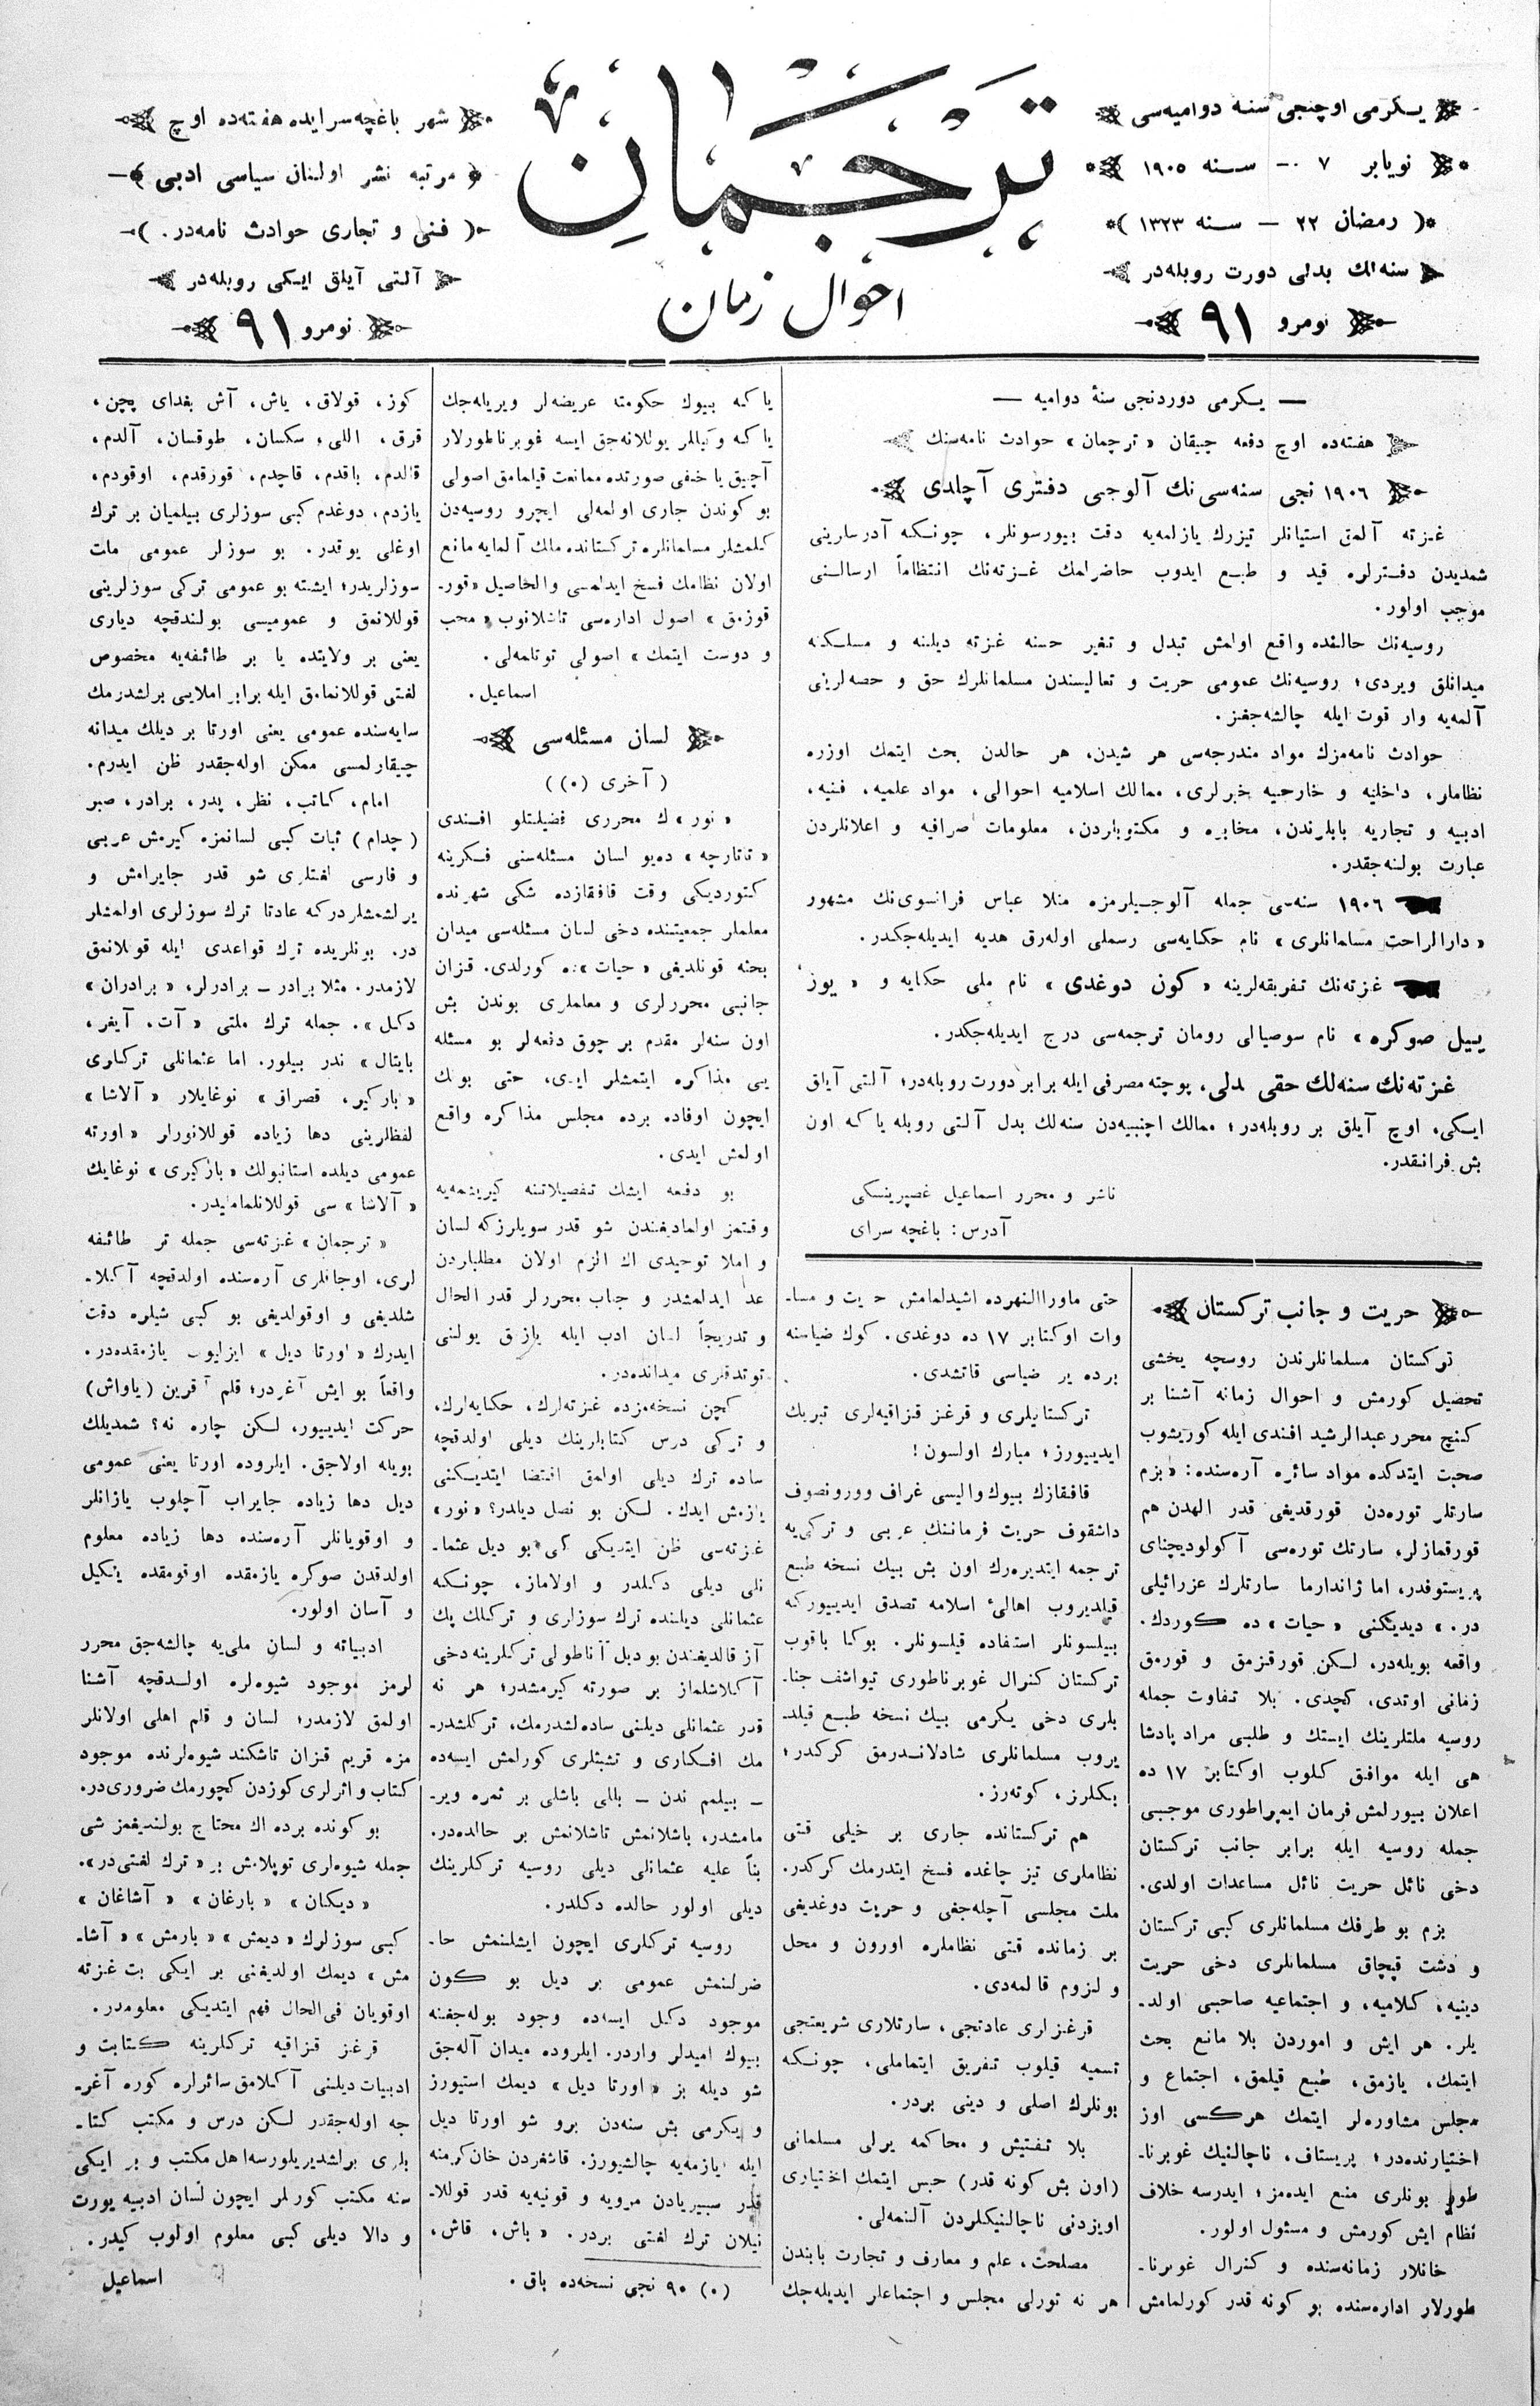 يكرمى اوچنجى سنه دواميه‌سى
نويابر ٧ — سنه ١٩٠٥
( رمضان ٢٢ — سنه ١٣٢٣ )
سنه‌لك بدلى دورت روبله‌در
نومرو ٩١
ترجمان
احوال زمان
شهر باغچه‌سرايده هفته‌ده اوچ
مرتبه نشر اولنان سياسى ادبى
( فنى و تجارى حوادث نامه‌در. )
آلتى آيلق ايكى روبله‌در
نومرو ٩١
— يكرمى دوردنجى سنهٔ دواميه —
هفته‌ده اوچ دفعه چيقان « ترجمان » حوادث نامه‌سنك
١٩٠٦ نجى سنه‌سى‌نك آلوجى دفترى آچلدى
غزته آلمق استيانلر تيزرك يازلمه‌يه دقت بيورسونلر، چونكه آدرسلرينى
شمديدن دفترلره قيد و طبع ايدوب حاضرلمك غزته‌نك انتظاماً ارسالنى
موجب اولور.
روسيه‌نك حالنده واقع اولمش تبدل و تغير حسنه غزته ديلنه و مسلكنه
ميدانلق ويردى؛ روسيه‌نك عمومى حريت و تعاليسندن مسلمانلرك حق و حصه‌لرينى
آلمه‌يه وار قوت ايله چالشه‌جغز.
حوادث نامه‌مزك مواد مندرجه‌سى هر شيدن، هر حالدن بحث ايتمك اوزره
نظاملر، داخليه و خارجيه خبرلرى، ممالك اسلاميه احوالى، مواد علميه، فنيه،
ادبيه و تجاريه بابلرندن، مخابره و مكتوبلردن، معلومات صرافيه و اعلانلردن
عبارت بولنه‌جقدر.
١٩٠٦ سنه‌سى جمله آلوجيلرمزه منلا عباس فرانسوى‌نك مشهور
« دارالراحت مسلمانلرى » نام حكايه‌سى رسملى اوله‌رق هديه ايديله‌جكدر.
غزته‌نك تفريقه‌لرينه « كون دوغدى » نام ملى حكايه و « يوز
ييل صوكره » نام سوصيالى رومان ترجمه‌سى درج ايديله‌جكدر.
غزته‌نك سنه‌لك حقى بدلى، پوچته مصرفى ايله برابر دورت روبله‌در؛ آلتى آيلق
ايكى، اوچ آيلق بر روبله‌در؛ ممالك اجنبيه‌دن سنه‌لك بدل آلتى روبله ياكه اون
بش فرانقدر.
ناشر و محرر اسماعيل غصپرينسكى
آدرس: باغچه سراى
حريت و جانب تركستان
تركستان مسلمانلرندن روسچه يخشى
تحصيل كورمش و احوال زمانه آشنا بر
كنچ محرر عبدالرشيد افندى ايله كوريشوب
صحبت ايتدكده مواد سائره آره‌سنده: « بزم
سارتلر توره‌دن قورقديغى قدر اللهدن هم
قورقمازلر، سارتك توره‌سى آكولوديچناى
پريستوفدر، اما ژاندارما سارتلرك عزرائيلى
در. » ديديكنى « حيات » ده كوردك.
واقعه بويله‌در، لكن قورقنزمق و قورمق
زمانى اوتدى، كچدى. بلا تفاوت جمله
روسيه ملتلرينك ايستك و طلبى مراد پادشا
هى ايله موافق كلوب اوكتابر ١٧ ده
اعلان بيورلمش فرمان ايمپراطورى موجبى
جمله روسيه ايله برابر جانب تركستان
دخى نائل حريت نائل مساعدات اولدى.
بزم بو طرفك مسلمانلرى كبى تركستان
و دشت قپچاق مسلمانلرى دخى حريت
دينيه، كلاميه، و اجتماعيه صاحبى اولد-
يلر. هر ايش و اموردن بلا مانع بحث
ايتمك، يازمق، طبع قيلمق، اجتماع و
مجلس مشاوره‌لر ايتمك هركسى اوز
اختيارنده‌در؛ پريستاف، ناچالنيك غوبرنا-
طور بونلرى منع ايده‌مز؛ ايدرسه خلاف
نظام ايش كورمش و مسئول اولور.
خانلار زمانه‌سنده و كنرال غوبرنا-
طورلار اداره‌سنده بو كونه قدر كورلمامش
حتى ماوراالنهرده اشيدلمامش حريت و مسا-
وات اوكتابر ١٧ ده دوغدى. كوك ضياسنه
برده ير ضياسى قاتشدى.
تركستانلرى و قرغز قزاقيه‌لرى تبريك
ايديبورز؛ مبارك اولسون!
قافقازك بيوك واليسى غراف وورونصوف
داشقوف حريت فرماننك عربى و تركى‌يه
ترجمه ايتديره‌رك اون بش بيك نسخه طبع
قيلديروب اهالىٔ اسلامه تصدق ايديبوركه
بيلسونلر استفاده قيلسونلر. بوكا باقوب
تركستان كنرال غوبرناطورى تيواشف جنا-
بلرى دخى يكرمى بيك نسخه طبع قيلد-
يروب مسلمانلرى شادلاندرمق كركدر؛
بكلرز، كوته‌رز.
هم تركستانده جارى بر خيلى قتى
نظاملرى تيز چاغده فسخ ايتدرمك كركدر.
ملت مجلسى آچله‌جغى و حريت دوغديغى
بر زمانده قتى نظاملره اورون و محل
و لزوم قالمه‌دى.
قرغزلرى عادتجى، سارتلارى شريعتجى
تسميه قيلوب تفريق ايتماملى، چونكه
بونلرك اصلى و دينى بردر.
بلا تفتيش و محاكمه يرلى مسلمانى
(اون بش كونه قدر) حبس ايتمك اختيارى
اويزدنى ناچالنيكلردن آلنمه‌لى.
مصلحت، علم و معارف و تجارت بابندن
هر نه تورلى مجلس و اجتماعلر ايديله‌جك
ياكه بيوك حكومته عريضه‌لر ويريله‌جك
ياكه وكيللر يوللانه‌جق ايسه غوبرناطورلار
آچيق يا خفى صورتده ممانعت قيلمامق اصولى
بو كوندن جارى اولمه‌لى ايچرو روسيه‌دن
كلمشلر مسلمانلره تركستانده ملك آلمايه مانع
اولان نظامك فسخ ايدلمسى والحاصيل « قور-
قوزمق » اصول اداره‌سى تاشلانوب « محب
و دوست ايتمك » اصولى توتلمه‌لى.
اسماعيل.
لسان مسئله‌سى
( آخرى (٠) )
« نور »ك محررى فضيلتلو افندى
« تاتارچه » ده‌يو لسان مسئله‌سنى فكرينه
كتورديكى وقت قافقازده شكى شهرنده
معلملر جمعيتنده دخى لسان مسئله‌سى ميدان
بحثه قونلديغى « حيات »ده كورلدى. قزان
جانبى محررلرى و معلملرى بوندن بش
اون سنه‌لر مقدم بر چوق دفعه‌لر بو مسئله
يى مذاكره ايتمشلر ايدى، حتى بونك
ايچون اوفاده برده مجلس مذاكره واقع
اولمش ايدى.
بو دفعه ايشك تفصيلاتنه كيريشمه‌يه
وقتمز اولماديغندن شو قدر سويلرزكه لسان
و املا توحيدى اك الزم اولان مطلبلردن
عد ايدلمشدر و جناب محررلر قدر الحال
و تدريجاً لسان ادب ايله يازمق يولنى
توتدقلرى ميدانده‌در.
كچن نسخه‌مزده غزته‌لرك، حكايه‌لرك،
و تركى درس كتابلرينك ديلى اولدقچه
ساده ترك ديلى اولمق اقتضا ايتديكنى
يازمش ايدك. لكن بو نصل ديلدر؟ « نور »
غزته‌سى ظن ايتديكى كبى بو ديل عثما-
نلى ديلى دكلدر و اولاماز، چونكه
عثمانلى ديلنده ترك سوزلرى و تركلك پك
آز قالديغندن بو ديل آناطولى تركلرينه دخى
آكلاشلماز بر صورته كيرمشدر؛ هر نه
قدر عثمانلى ديلنى ساده‌لشدرمك، تركلشدر-
مك افكارى و تشبثلرى كورلمش ايسه‌ده
— بيلمم ندن — بللى باشلى بر ثمره وير-
مامشدر، باشلانمش تاشلانمش بر حالده‌در.
بناً عليه عثمانلى ديلى روسيه تركلرينك
ديلى اولور حالده دكلدر.
روسيه تركلرى ايچون ايشلنمش حا-
ضرلنمش عمومى بر ديل بو كون
موجود دكل ايسه‌ده وجود بوله‌جغنه
بيوك اميدلر واردر. ايلروده ميدان آله‌جق
شو ديله بز « اورتا ديل » ديمك استيورز
و يكرمى بش سنه‌دن برو شو اورتا ديل
ايله يازمه‌يه چالشيورز. قاشغردن خان كرمنه
قدر سيبريادن مرويه و قونيه‌يه قدر قوللا-
نيلان ترك لغتى بردر. « باش، قاش،
(٠) ٩٠ نجى نسخه‌ده باق.
كوز، قولاق، ياش، آش بغداى پچن،
قرق، اللى، سكسان، طوقسان، آلدم،
قالدم، باقدم، قاچدم، قورقدم، اوقودم،
يازدم، دوغدم كبى سوزلرى بيلميان بر ترك
اوغلى يوقدر. بو سوزلر عمومى مات
سوزلريدر؛ ايشته بو عمومى تركى سوزلرينى
قوللانمق و عموميسى بولندقچه ديارى
يعنى بر ولايتده يا بر طائفه‌يه مخصوص
لغتى قوللانمامق ايله برابر املايى برلشدرمك
سايه‌سنده عمومى يعنى اورتا بر ديلك ميدانه
چيقارلمسى ممكن اوله‌جقدر ظن ايدرم.
امام، كاتب، نظر، پدر، برادر، صبر
( چدام ) ثبات كبى لسانمزه كيرمش عربى
و فارسى لغتلرى شو قدر جايرامش و
يرلشمشلردركه عادتا ترك سوزلرى اولمشلر
در. بونلريده ترك قواعدى ايله قوللانمق
لازمدر. مثلا برادر — برادرلر، « برادران »
دكل ». جمله ترك ملتى « آت، آيغر،
بايتال » ندر بيلور. اما عثمانلى تركلرى
« باركير، قصراق » نوغايلار « آلاشا »
لفظلرينى دها زياده قوللانورلر « اورته
عمومى ديلده استانبولك « باركيرى » نوغايك
« آلاشا » سى قوللانلمامليدر.
« ترجمان » غزته‌سى جمله تر طائفه
لرى، اوجاقلرى آره‌سنده اولدقچه آكلا-
شلديغى و اوقولديغى بو كبى شيلره دقت
ايدرك « اورتا ديل » ايزليوب يازمقده‌در.
واقعاً بو ايش آغردر؛ قلم آقرين (ياواش)
حركت ايديبور، لكن چاره نه؟ شمديلك
بويله اولاجق. ايلروده اورتا يعنى عمومى
ديل دها زياده جايراب آچلوب يازانلر
و اوقويانلر آره‌سنده دها زياده معلوم
اولدقدن صوكره يازمقده اوقومقده ينكيل
و آسان اولور.
ادبياته و لسان ملى‌يه چالشه‌جق محرر
لرمز موجود شيوه‌لره اولدقچه آشنا
اولمق لازمدر؛ لسان و قلم اهلى اولانلر
مزه قريم قزان تاشكند شيوه‌لرنده موجود
كتاب و اثرلرى كوزدن كچورمك ضرورى‌در.
بو كونده برده اك محتاج بولنديغمز شى
جمله شيوه‌لرى توپلامش بر « ترك لغتى‌در ».
« ديكان » « بارغان » « آشاغان »
كبى سوزلرك « ديمش » « بارمش » « آشا-
مش » ديمك اولديغنى بر ايكى بت غزته
اوقويان فى‌الحال فهم ايتديكى معلومدر.
قرغز قزاقيه تركلرينه كتابت و
ادبيات ديلنى آكلامق سائرلره كوره آغر-
جه اوله‌جقدر لكن درس و مكتب كتا-
بلرى برلشديريلورسه اهل مكتب و بر ايكى
سنه مكتب كورلمر ايچون لسان ادبيه يورت
و دالا ديلى كبى معلوم اولوب كيدر.
اسماعيل